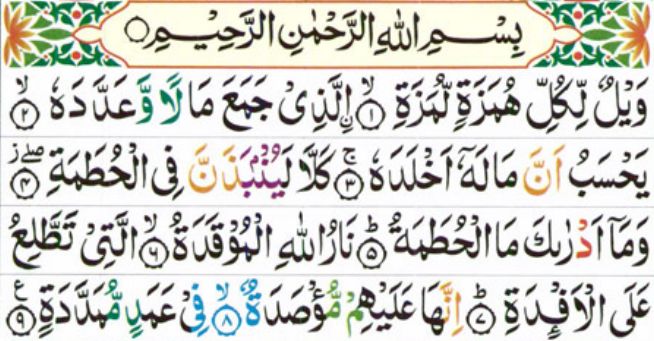 بِسْمِ اللهِ الرَّحْمٰنِ الرَّحِيْمِ
وَيْلٌ لِّكُلِّ هُمَزَةٍ لُّمَزَةٍ ۙ﴿۱﴾ اِ۟لَّذِىْ جَمَعَ مَالًا وَّعَدَّدَهٗ ۙ﴿۲﴾
يَحْسَبُ اَنَّ مَالَهٗۤ اَخْلَدَهٗ ۚ﴿۳﴾ كَلَّا لَيُنْۢبَذَنَّ فِى الْحُطَمَةِ ۖ﴿۴﴾
وَمَاۤ اَدْرٰىكَ مَا الْحُطَمَةُ ؕ﴿۵﴾ نَارُ اللهِ الْمُوْقَدَةُ ۙ﴿۶﴾ الَّتِىْ تَطَّلِعُ
عَلَى الْاَفْـِٕدَةِ ؕ﴿۷﴾ اِنَّهَا عَلَيْهِمْ مُّؤْصَدَةٌ ۙ﴿۸﴾ فِىْ عَمَدٍ مُّمَدَّدَةٍ ﴿۹﴾